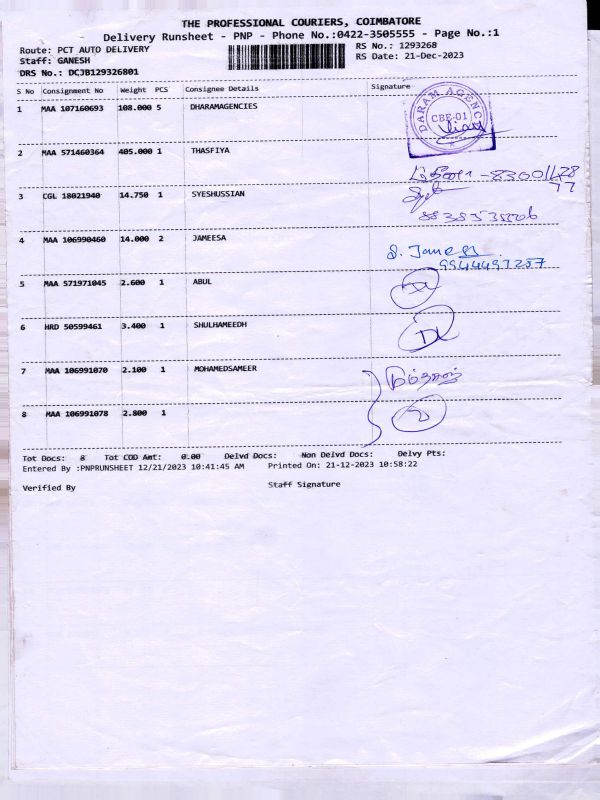 THE PROFESSIONAL COURIERS, COIMBATORE
Delivery Runsheet - PNP - Phone No.:0422-3505555 - Page No.:1
Route: PCT AUTO DELIVERY RS No.: 1293268
Staff: GANESH RS Date: 21-Dec-2023
DRS No.: DCJB129326801
S No Consignment No Weight PCS Consignee Details Signature
1 MAA 107160693 108.000 5 DHARAMAGENCIES
DARAM AGENCY
CBE-01
2 MAA 571460364 405.000 1 THASFIYA
3 CGL 18021940 14.750 1 SYESHUSSIAN
4 MAA 106990460 14.000 2 JAMEESA
9944497257
5 MAA 571971045 2.600 1 ABUL
6 HRD 50599461 3.400 1 SHULHAMEEDH
7 MAA 106991070 2.100 1 MOHAMEDSAMEER
8 MAA 106991078 2.800 1
Tot Docs: 8 Tot COD Amt: 0.00 Delvd Docs: Non Delvd Docs: Delvy Pts:
Entered By :PNPRUNSHEET 12/21/2023 10:41:45 AM Printed On: 21-12-2023 10:58:22
Verified By Staff Signature